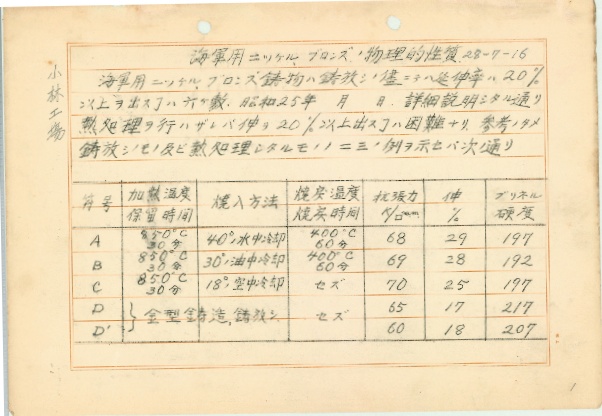 小林工場
海軍用ニッケル、ブロンズノ物理的性質 28-7-16
海軍用ニッケル、ブロンズ鋳物ハ鋳放シノ儘ニテハ延伸率ハ20%
以上ヲ出スヿハ六ケ敷、昭和25年 月 日、詳細説明シタル通リ
熱処理ヲ行ハザレバ伸ヲ20%以上出スヿハ困難ナリ、参考ノタメ
鋳放シノモノ及ビ熱処理シタルモノノ二三ノ例ヲ示セバ次ノ通リ
符号 加熱温度 保留時間 焼入方法 焼戻温度 焼戻時間 抗張力 伸 % ブリネル 硬度
A 850°C 30分 40°ノ水中冷却 400°C 60分 68 29 197
B 850°C 30分 30°ノ油中冷却 400°C 60分 69 28 192
C 850°C 30分 18°ノ空中冷却 セズ 70 25 197
D 金型鋳造、鋳放シ セズ 65 17 217
D' 60 18 207
1